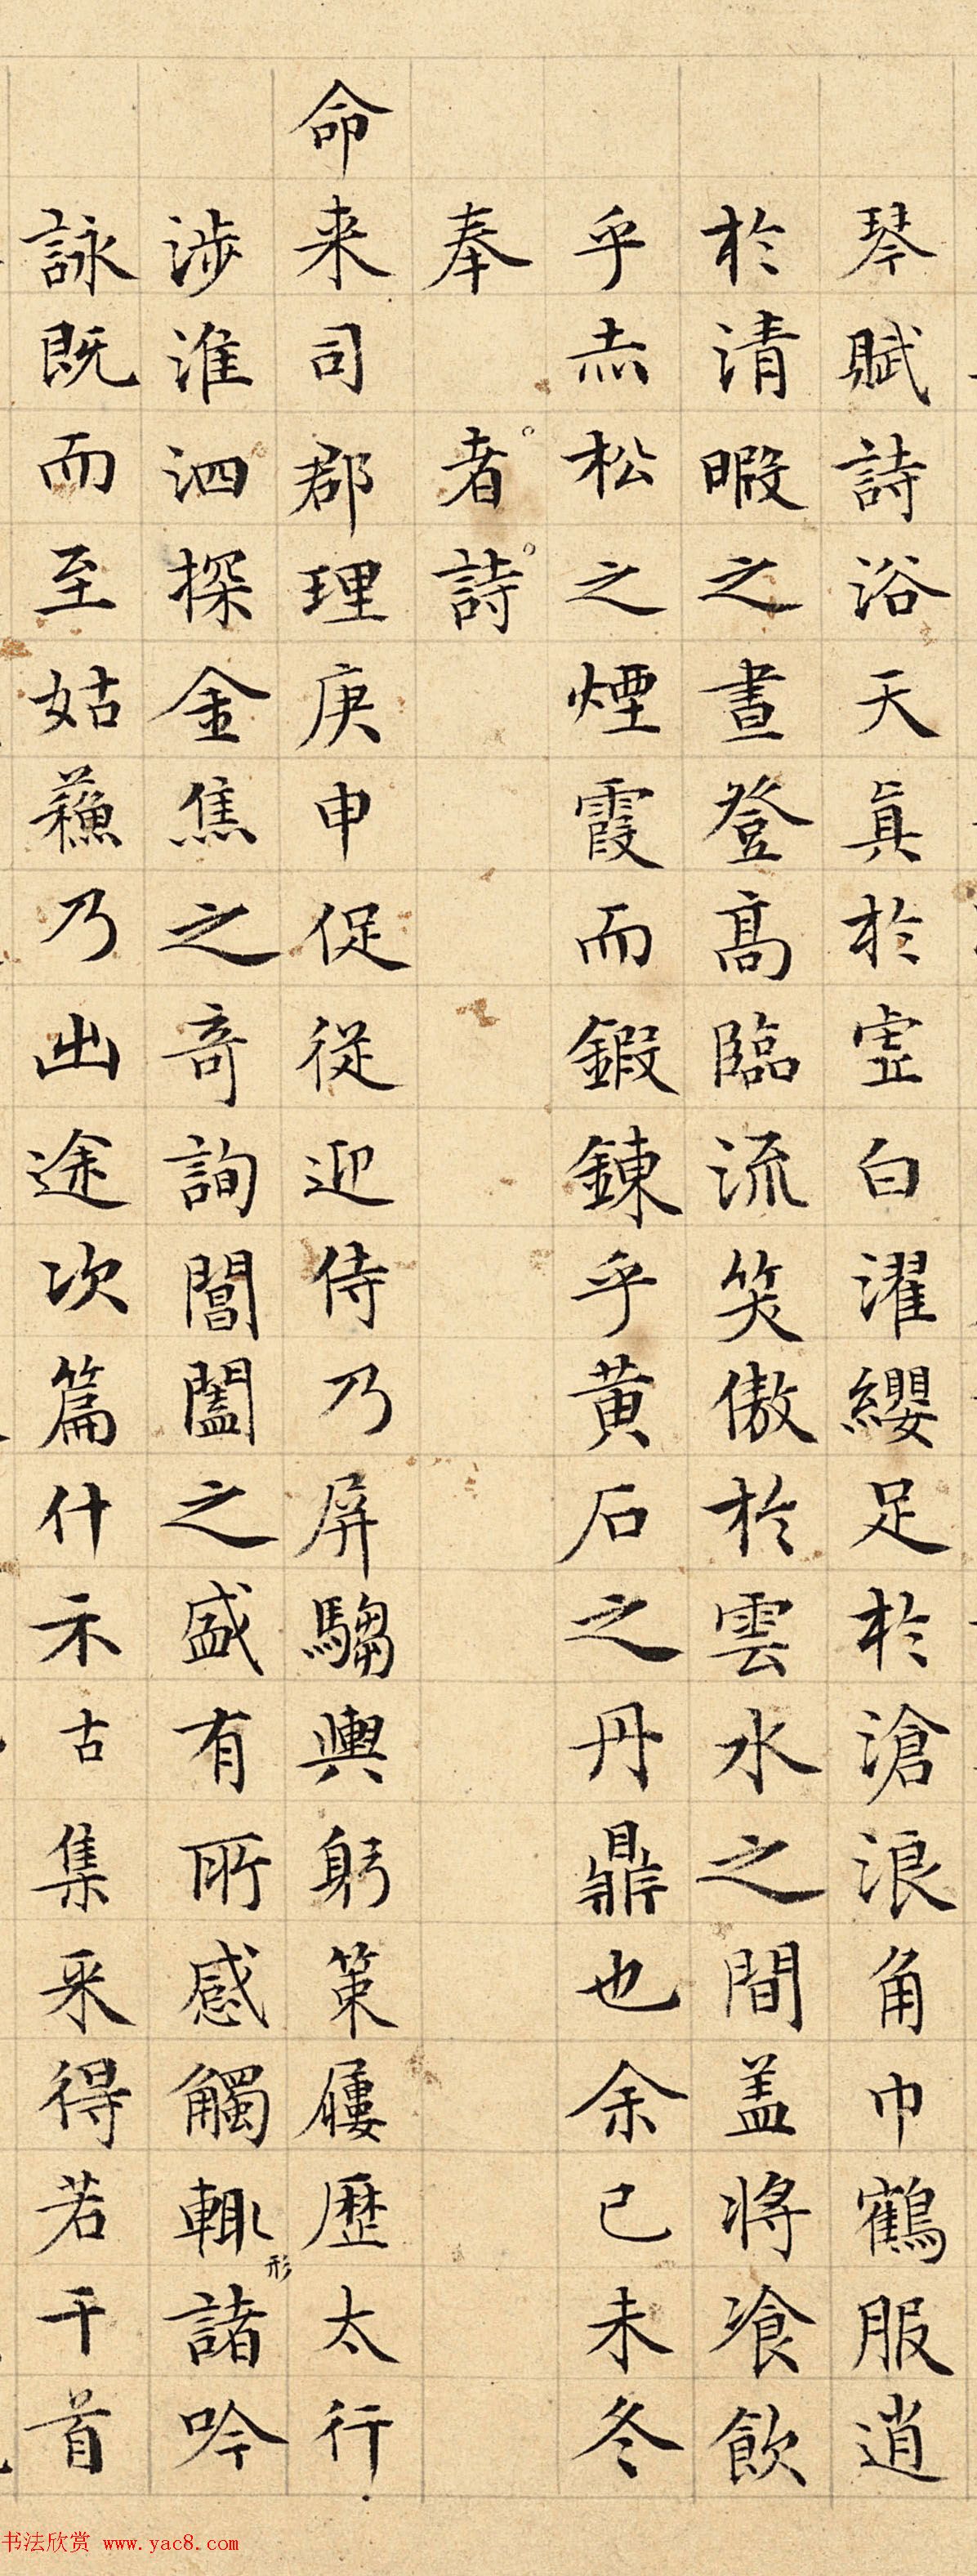 琴賦詩浴天真於虛白濯纓足於滄浪角巾鶴服逍
於清暇之晝登高臨流笑傲於雲水之間盖將飡飲
乎赤松之煙霞而鍜鍊乎黄石之丹鼎也余己未冬
奉者詩
命来司郡理庚申促從迎侍乃屏騶輿躬策屨歷太行
涉淮泗探金焦之奇詢閶闔之盛有所感觸輙形諸吟
詠既而至姑蘓乃出途次篇什示古集采得若干首
书法欣赏 www.yac8.com